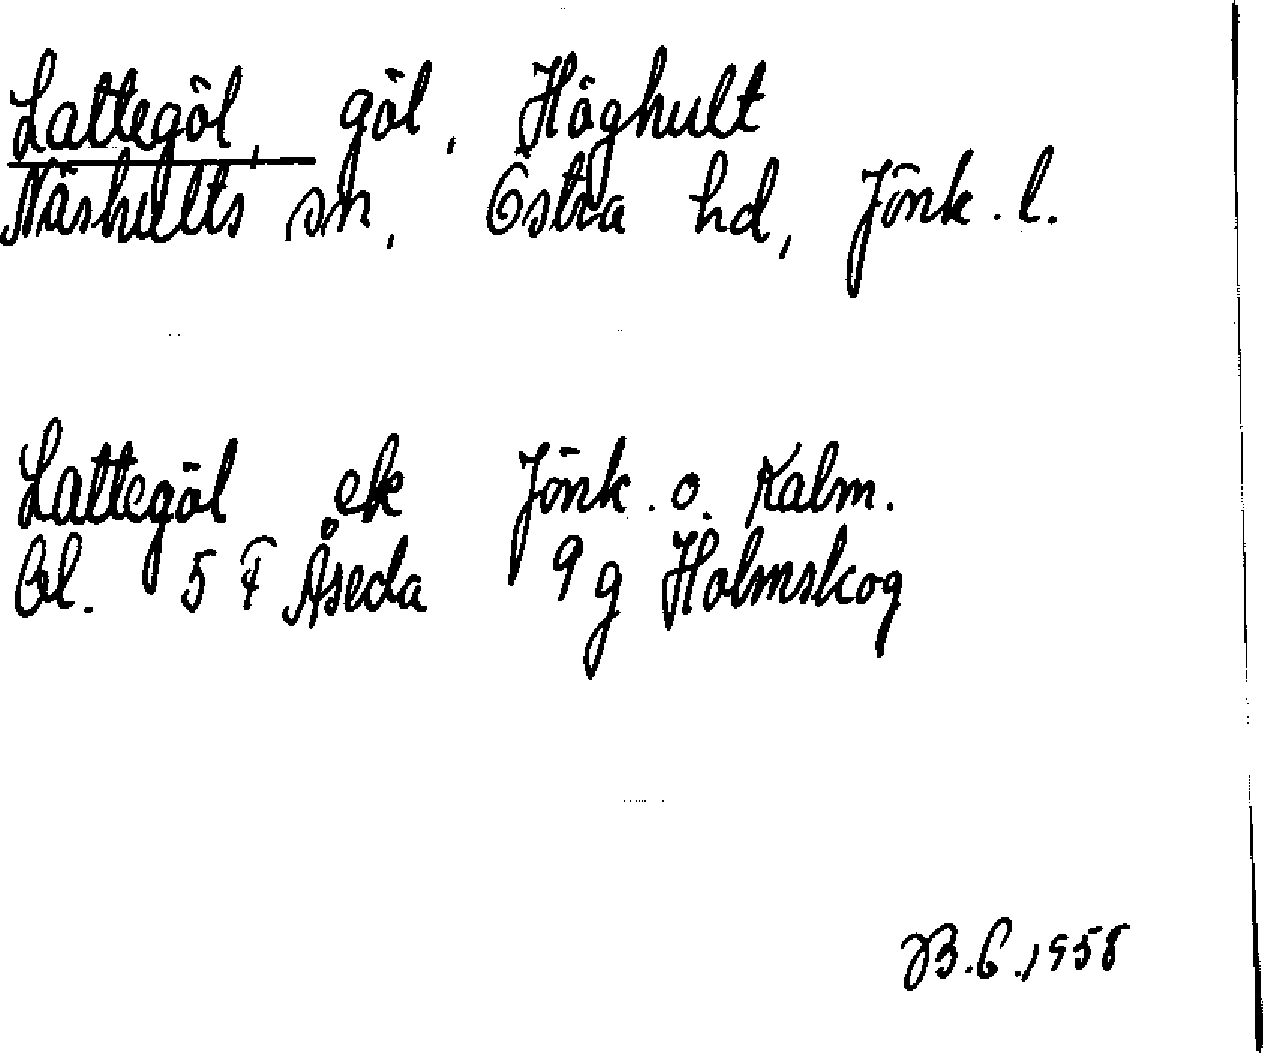 Lattegöl, göl, Höghult
Näshults sn, Östra hd, Jönk. l.
Lattegöl ek Jönk. o. Kalm.
bl. 5 F Åseda 9 g Holmskog
B. C. 1958